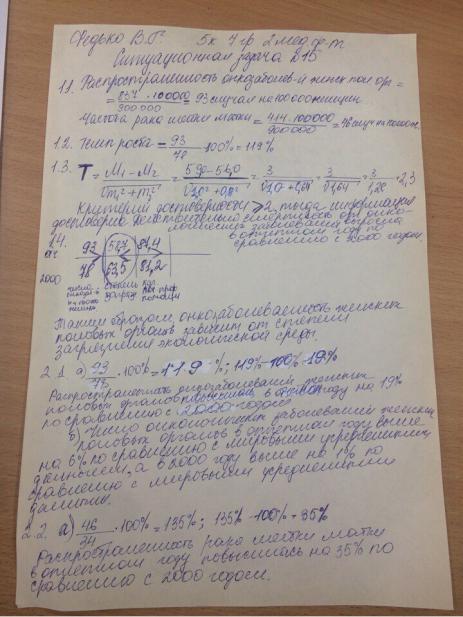 Федько В.Г. 5к 4 гр 2 мед. ф-т
Ситуационная задача №15
1.1. Распространенность онкозаболев-й женск пол орг =
= 837 · 100000 / 900000 = 93 случая на 100000 женщин
Частота рака шейки матки = 414 · 100000 / 900000 = 46 случ на 100000 ж.
1.2. Темп роста = 93 / 78 · 100% = 119%
1.3. T = M₁ - M₂ / √m₁² + m₂² = 59,0 - 56,0 / = 3 / = 3 / √1,64 = 3 / 1,28 = 2,3
Критерий достоверности > 2, тогда информация
достоверна. смертность от онко-
логических заболеваний
в отчетном году по
сравнению с 2000 годом.
1.4.
93 81,4
2000 78 63,5 81,2
число степень
загряз мед проф
помощи
Таким образом, онкозаболеваемость женских
половых органов зависит от степени
загрязнения экологической среды.
2.1 а) 93 / 78 · 100% = 119%; 119% - 100% = 19%
Распространенность онкозаболеваний женских
половых органов в году на 19%
по сравнению с 2000 годом.
б) Число онкологических заболеваний женских
половых органов в отчетном году выше
на 6% по сравнению с мировыми усредненными
данными, а в 2000 году выше на 1% по
сравнению с мировыми усредненными
данными.
2.2 а) 46 / 34 · 100% = 135%; 135% - 100% = 35%
Распространенность рака шейки матки
в отчетном году повысилась на 35% по
сравнению с 2000 годом.